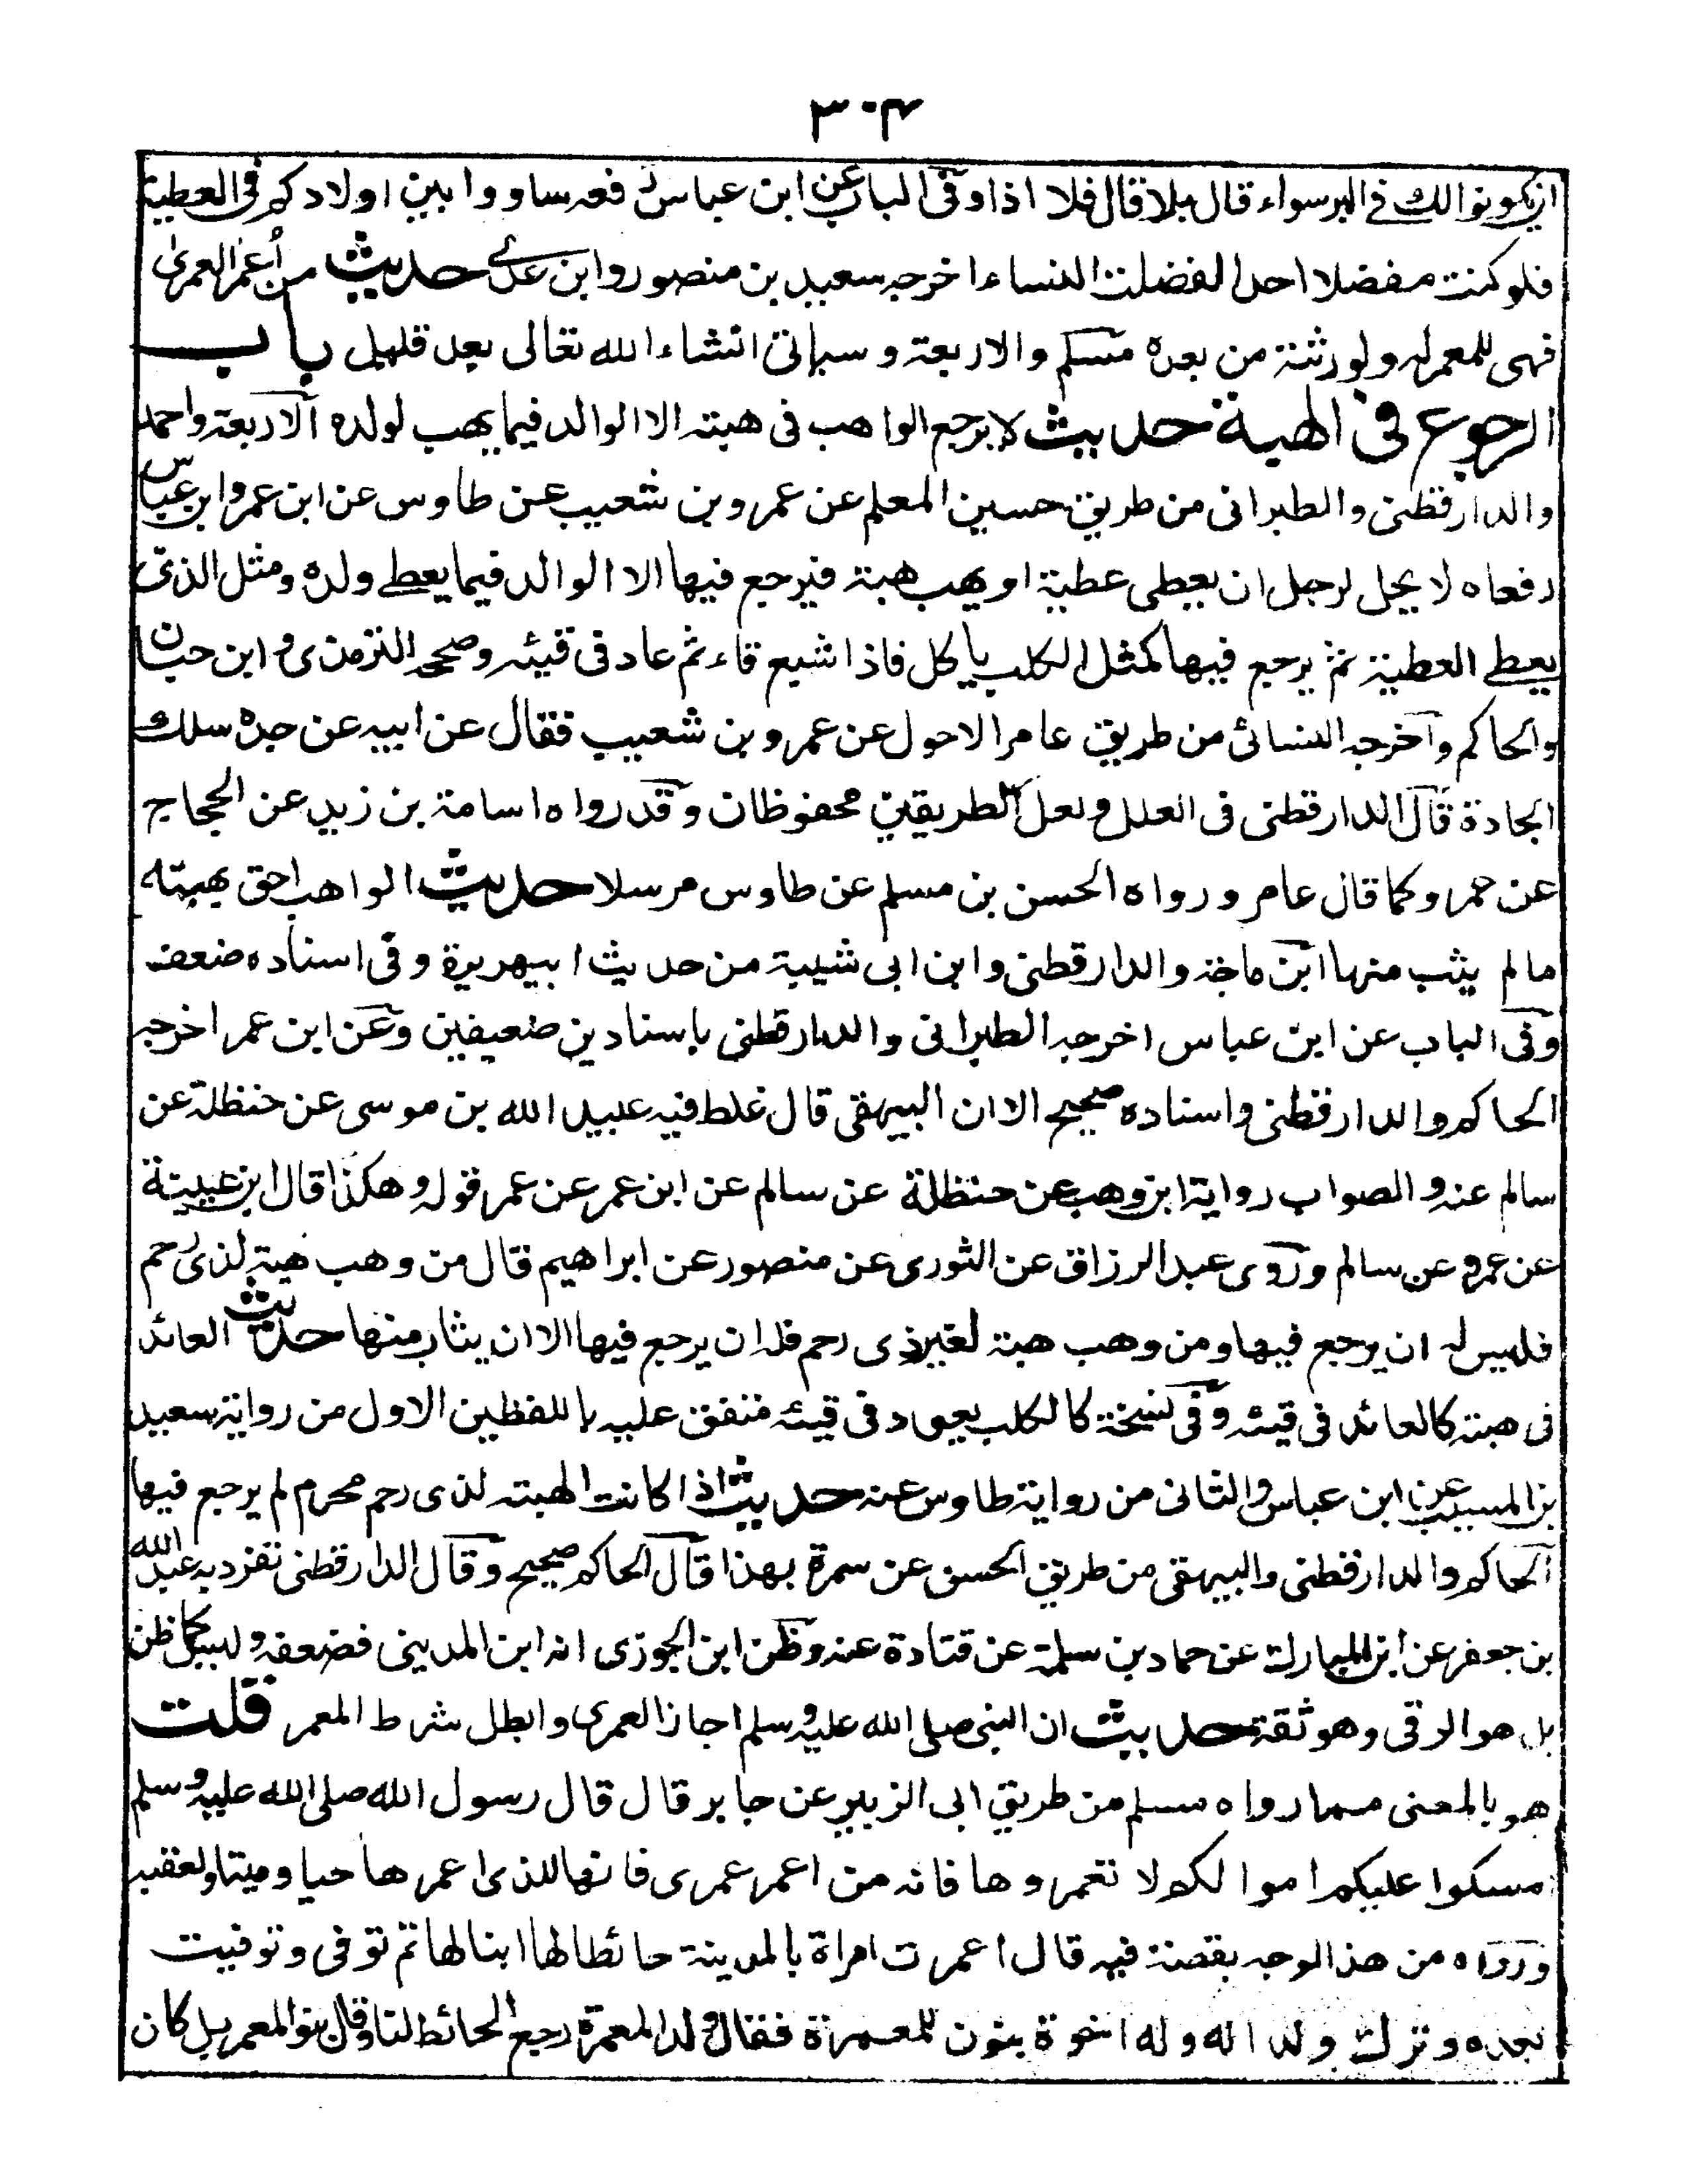 ٣٠۴
ان يكونوا لك فى البر سواء قال بلا قال فلا اذا وفى الباب عن ابن عباس رفعه ساووا بين اولادكم فى العطية
فلو كنت مفضلا احدا لفضلت النساء اخرجه سعيد بن منصور وابن عدى حديث من أعمر العمرى
فهى للمعمر له ولورثته من بعده مسلم والاربعة و سياتى انشاء الله تعالى بعد قليل باب
الرجوع فى الهبة حديث لا يرجع الواهب فى هبته الا الوالد فيما يهب لولده الاربعة واحمد
والدارقطنى والطبرانى من طريق حسين المعلم عن عمرو بن شعيب عن طاوس عن ابن عمر وابن عباس
رفعاه لا يحل لرجل ان يعطى عطية او يهب هبة فيرجع فيها الا الوالد فيما يعطى ولده ومثل الذى
يعطى العطية ثم يرجع فيها كمثل الكلب ياكل فاذا شبع قاء ثم عاد فى قيئه وصححه الترمذى و ابن حبان
والحاكم وآخرجه النسائى من طريق عامر الاحول عن عمرو بن شعيب فقال عن ابيه عن جده سلك
الجادة قال الدارقطنى فى العلل ولعل الطريقين محفوظان وقد رواه اسامة بن زيد عن الحجاج
عن عمرو كما قال عامر ورواه الحسن بن مسلم عن طاوس مرسلا حديث الواهب احق بهبته
مالم يثب منها ابن ماجة والدارقطنى وابن ابى شيبة من حديث ابيهريرة وفى اسناده ضعف
وفى الباب عن ابن عباس اخرجه الطبرانى والدارقطنى باسنادين ضعيفين وعن ابن عمر اخرجه
الحاكم والدارقطنى واسناده صحيح الا ان البيهقى قال غلط فيه عبيد الله بن موسى عن حنظلة عن
سالم عنه والصواب رواية ابن وهب عن حنظلة عن سالم عن ابن عمر عن عمر قوله وهكذا قال ابن عيينة
عن عمرو عن سالم وروى عبد الرزاق عن الثورى عن منصور عن ابراهيم قال من وهب هبة لذى رحم
فليس له ان يرجع فيها ومن وهب هبة لغير ذى رحم فله ان يرجع فيها الا ان يثاب منها حديث العائد
فى هبته كالعائد فى قيئه وفى نسخة كالكلب يعود فى قيئه متفق عليه باللفظين الاول من رواية سعيد
بن المسيب عن ابن عباس والثانى من رواية طاوس عنه حديث اذا كانت الهبة لذى رحم محرم لم يرجع فيها
الحاكم والدارقطنى والبيهقى من طريق الحسن عن سمرة بهذا قال الحاكم صحيح وقال الدارقطنى تفرد به عبد الله
بن جعفر عن ابن المبارك عن حماد بن سلمة عن قتادة عنه وظن ابن الجوزى انه ابن المدينى فضعفه وليس كما ظن
بل هو الرقى وهو ثقة حديث ان النبى صلى الله عليه وسلم اجاز العمرى وابطل شرط المعمر قلت
هو بالمعنى مما رواه مسلم من طريق ابى الزبير عن جابر قال قال رسول الله صلى الله عليه وسلم
امسكوا عليكم اموالكم لا تعمروها فانه من اعمر عمرى فانها للذى اعمرها حيا وميتا ولعقبه
ورواه من هذا الوجه بقصة فيه قال اعمرت امراة بالمدينة حائطا لها ابنا لها ثم توفى وتوفيت
بعده وترك ولدا له وله اخوة بنون للمعمرة فقال ولد المعمرة رجع الحائط لنا وقال بنو المعمر بل كان